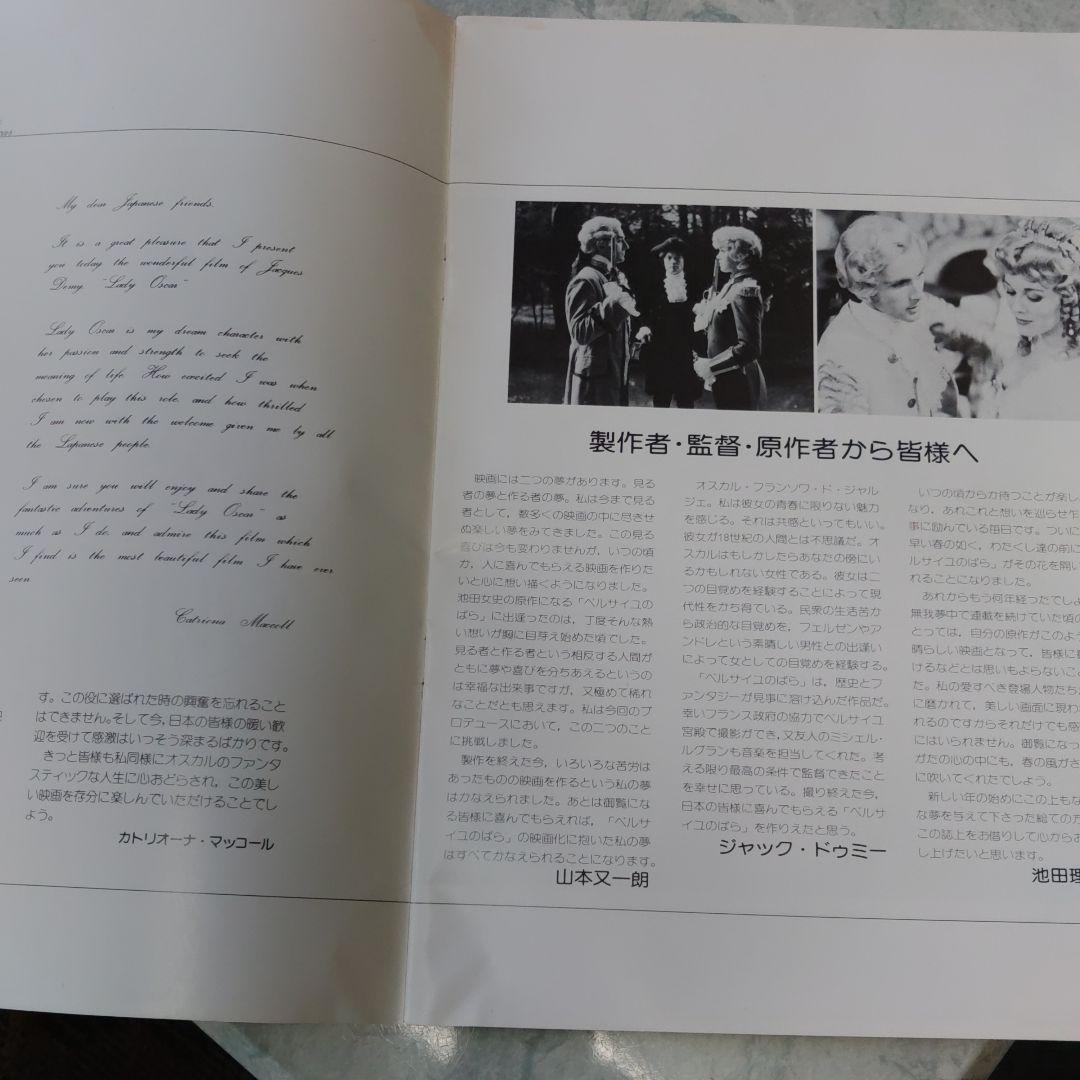 My dear Japanese friends.
It is a great pleasure that I present
you today the wonderful film of Jacques
Demy. "Lady Oscar"
Lady Oscar is my dream character with
her passion and strength to seek the
meaning of life. How excited I was when
chosen to play this role. and how thrilled
I am now with the welcome given me by all
the Lapanese people.
I am sure you will enjoy and share the
fantastic adventures of "Lady Oscar" as
much as I do. and admire this film which
I find is the most beautiful film I have ever
seen
Catriona Maccoll
す。この役に選ばれた時の興奮を忘れること
はできません。そして今、日本の皆様の暖い歓
迎を受けて感激はいっそう深まるばかりです。
きっと皆様も私同様にオスカルのファンタ
スティックな人生に心おどらされ、この美し
い映画を存分に楽しんでいただけることでし
ょう。
カトリオーナ・マッコール
製作者・監督・原作者から皆様へ
映画には二つの夢があります。見る
者の夢と作る者の夢。私は今まで見る
者として、数多くの映画の中に尽きせ
ぬ楽しい夢をみてきました。この見る
喜びは今も変わりませんが、いつの頃
か、人に喜んでもらえる映画を作りた
いと心に想い描くようになりました。
池田女史の原作になる「ベルサイユの
ばら」に出逢ったのは、丁度そんな熱
い想いが胸に目芽え始めた頃でした。
見る者と作る者という相反する人間が
ともに夢や喜びを分ちあえるというの
は幸福な出来事ですが、又極めて稀れ
なことだとも思えます。私は今回のプ
ロデュースにおいて、この二つのこと
に挑戦しました。
製作を終えた今、いろいろな苦労は
あったものの映画を作るという私の夢
はかなえられました。あとは御覧にな
る皆様に喜んでもらえれば、「ベルサ
イユのばら」の映画化に抱いた私の夢
はすべてかなえられることになります。
山本又一朗
オスカル・フランソワ・ド・ジャル
ジェ。私は彼女の青春に限りない魅力
を感じる。それは共感といってもいい。
彼女が18世紀の人間とは不思議だ。オ
スカルはもしかしたらあなたの傍にい
るかもしれない女性である。彼女は二
つの目覚めを経験することによって現
代性をかち得ている。民衆の生活苦か
ら政治的な目覚めを、フェルゼンやア
ンドレという素晴しい男性との出逢い
によって女としての目覚めを経験する。
「ベルサイユのばら」は、歴史とフ
ァンタジーが見事に溶け込んだ作品だ。
幸いフランス政府の協力でベルサイユ
宮殿で撮影ができ、又友人のミシェル・
ルグランも音楽を担当してくれた。考
える限り最高の条件で監督できたこと
を幸せに思っている。撮り終えた今、
日本の皆様に喜んでもらえる「ベルサ
イユのばら」を作りえたと思う。
ジャック・ドゥミー
いつの頃からか待つことが楽し
なり、あれこれと想いを巡らせ乍
事に励んでいる毎日です。ついに
早い春の如く、わたくし達の前に
ルサイユのばら」がその花を開い
れることになりました。
あれからもう何年経ったでしょ
無我夢中で連載を続けていた頃の
とっては、自分の原作がこのよう
晴らしい映画となって、皆様に
けるなどとは思いもよらないこ
た。私の愛すべき登場人物たち
に磨かれて、美しい画面に現わ
れるのですからそれだけでも感
にはいられません。御覧になっ
がたの心の中にも、春の風がさ
に吹いてくれたでしょう。
新しい年の始めにこの上もな
な夢を与えて下さった総ての方
この誌上をお借りして心からお
し上げたいと思います。
池田理